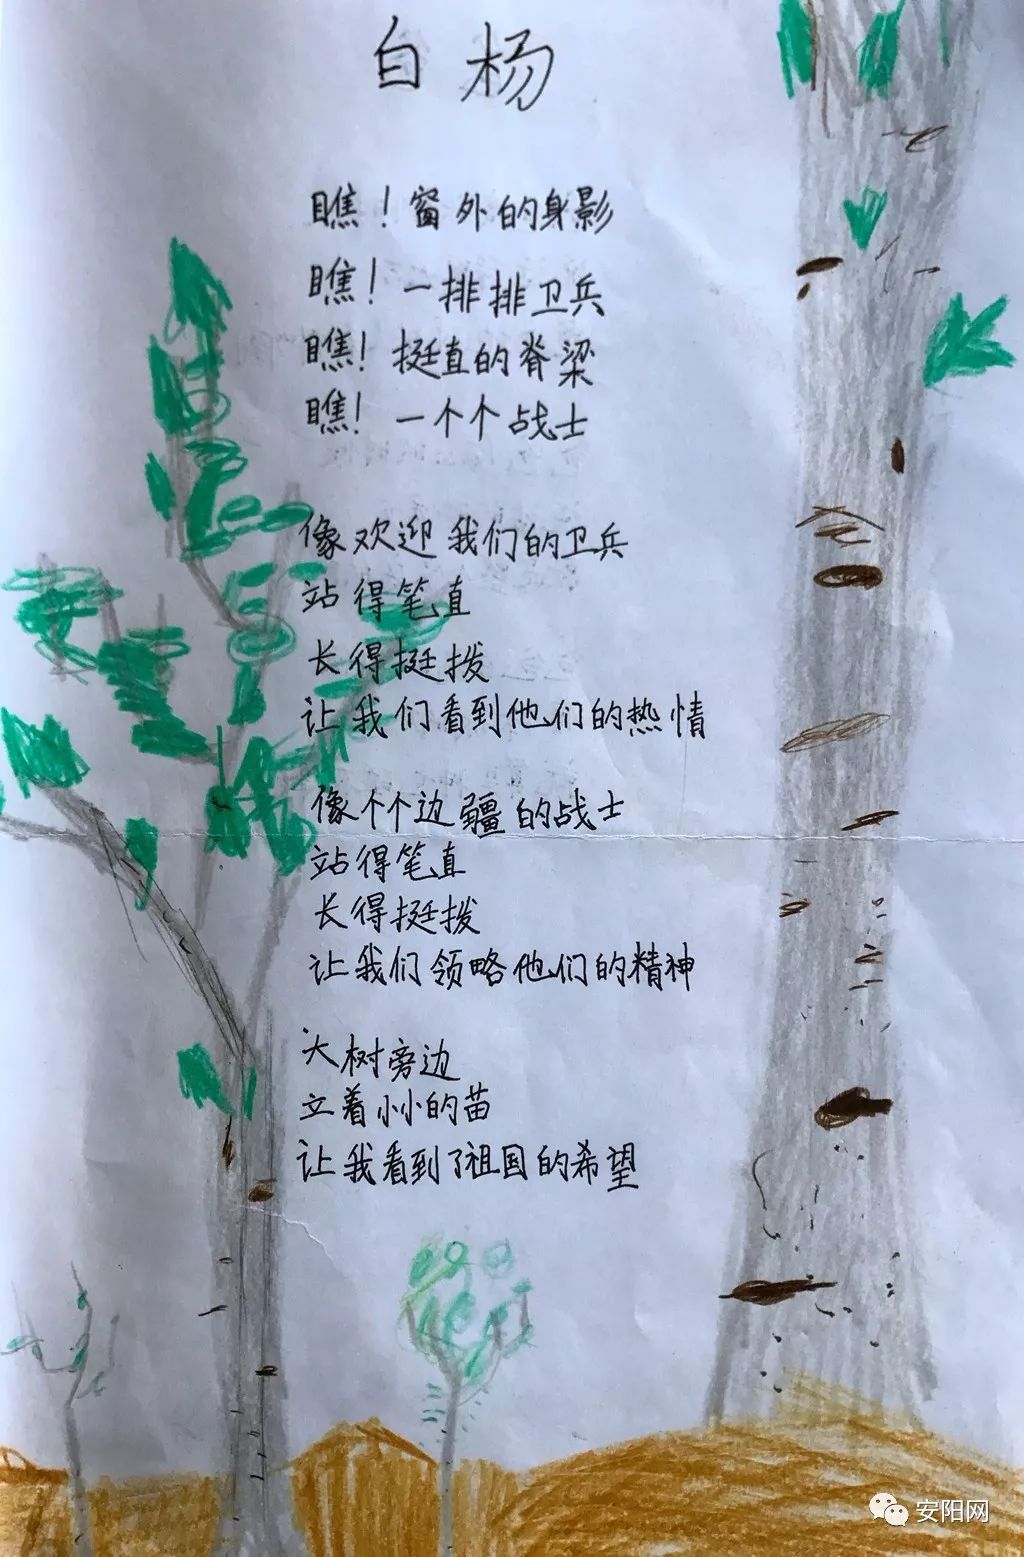 白杨
瞧！窗外的身影
瞧！一排排卫兵
瞧！挺直的脊梁
瞧！一个个战士
像欢迎我们的卫兵
站得笔直
长得挺拨
让我们看到他们的热情
像个个边疆的战士
站得笔直
长得挺拨
让我们领略他们的精神
大树旁边
立着小小的苗
让我看到了祖国的希望
安阳网